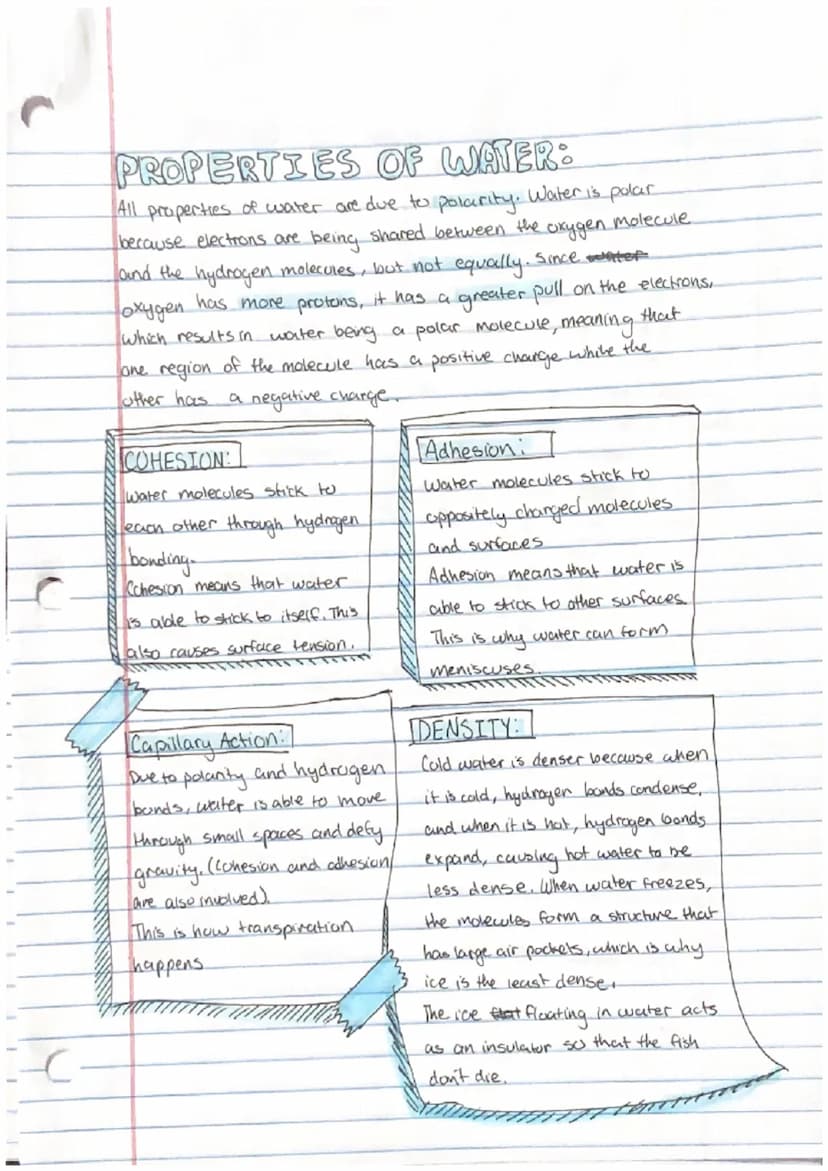 PROPERTIES OF WATER:
All properties of water are due to polarity. Water is polar
because electrons are being shared between the oxygen molecule
and the hydrogen molecules, but not equally. Since water
oxygen has more protons, it has a greater pull on the electrons,
which results in water being a polar molecule, meaning that
one region of the molecule has a positive charge while the
other has a negative charge.
COHESION:
Water molecules stick to
each other through hydrogen
bonding.
Cohesion means that water
is able to stick to itself. This
also causes surface tension.
Adhesion:
Water molecules stick to
oppositely charged molecules
and surfaces
Adhesion means that water is
able to stick to other surfaces
This is why water can form
meniscuses.
Capillary Action:
Due to polarity and hydrogen
bonds, water is able to move
through small spaces and defy
gravity. (Cohesion and adhesion
are also involved).
This is how transpiration
happens
DENSITY:
Cold water is denser because when
it is cold, hydrogen bonds condense,
and when it is hot, hydrogen bonds
expand, causing hot water to be
less dense. When water freezes,
the molecules form a structure that
has large air pockets, which is why
ice is the least dense.
The ice floating in water acts
as an insulator so that the fish
don't die.